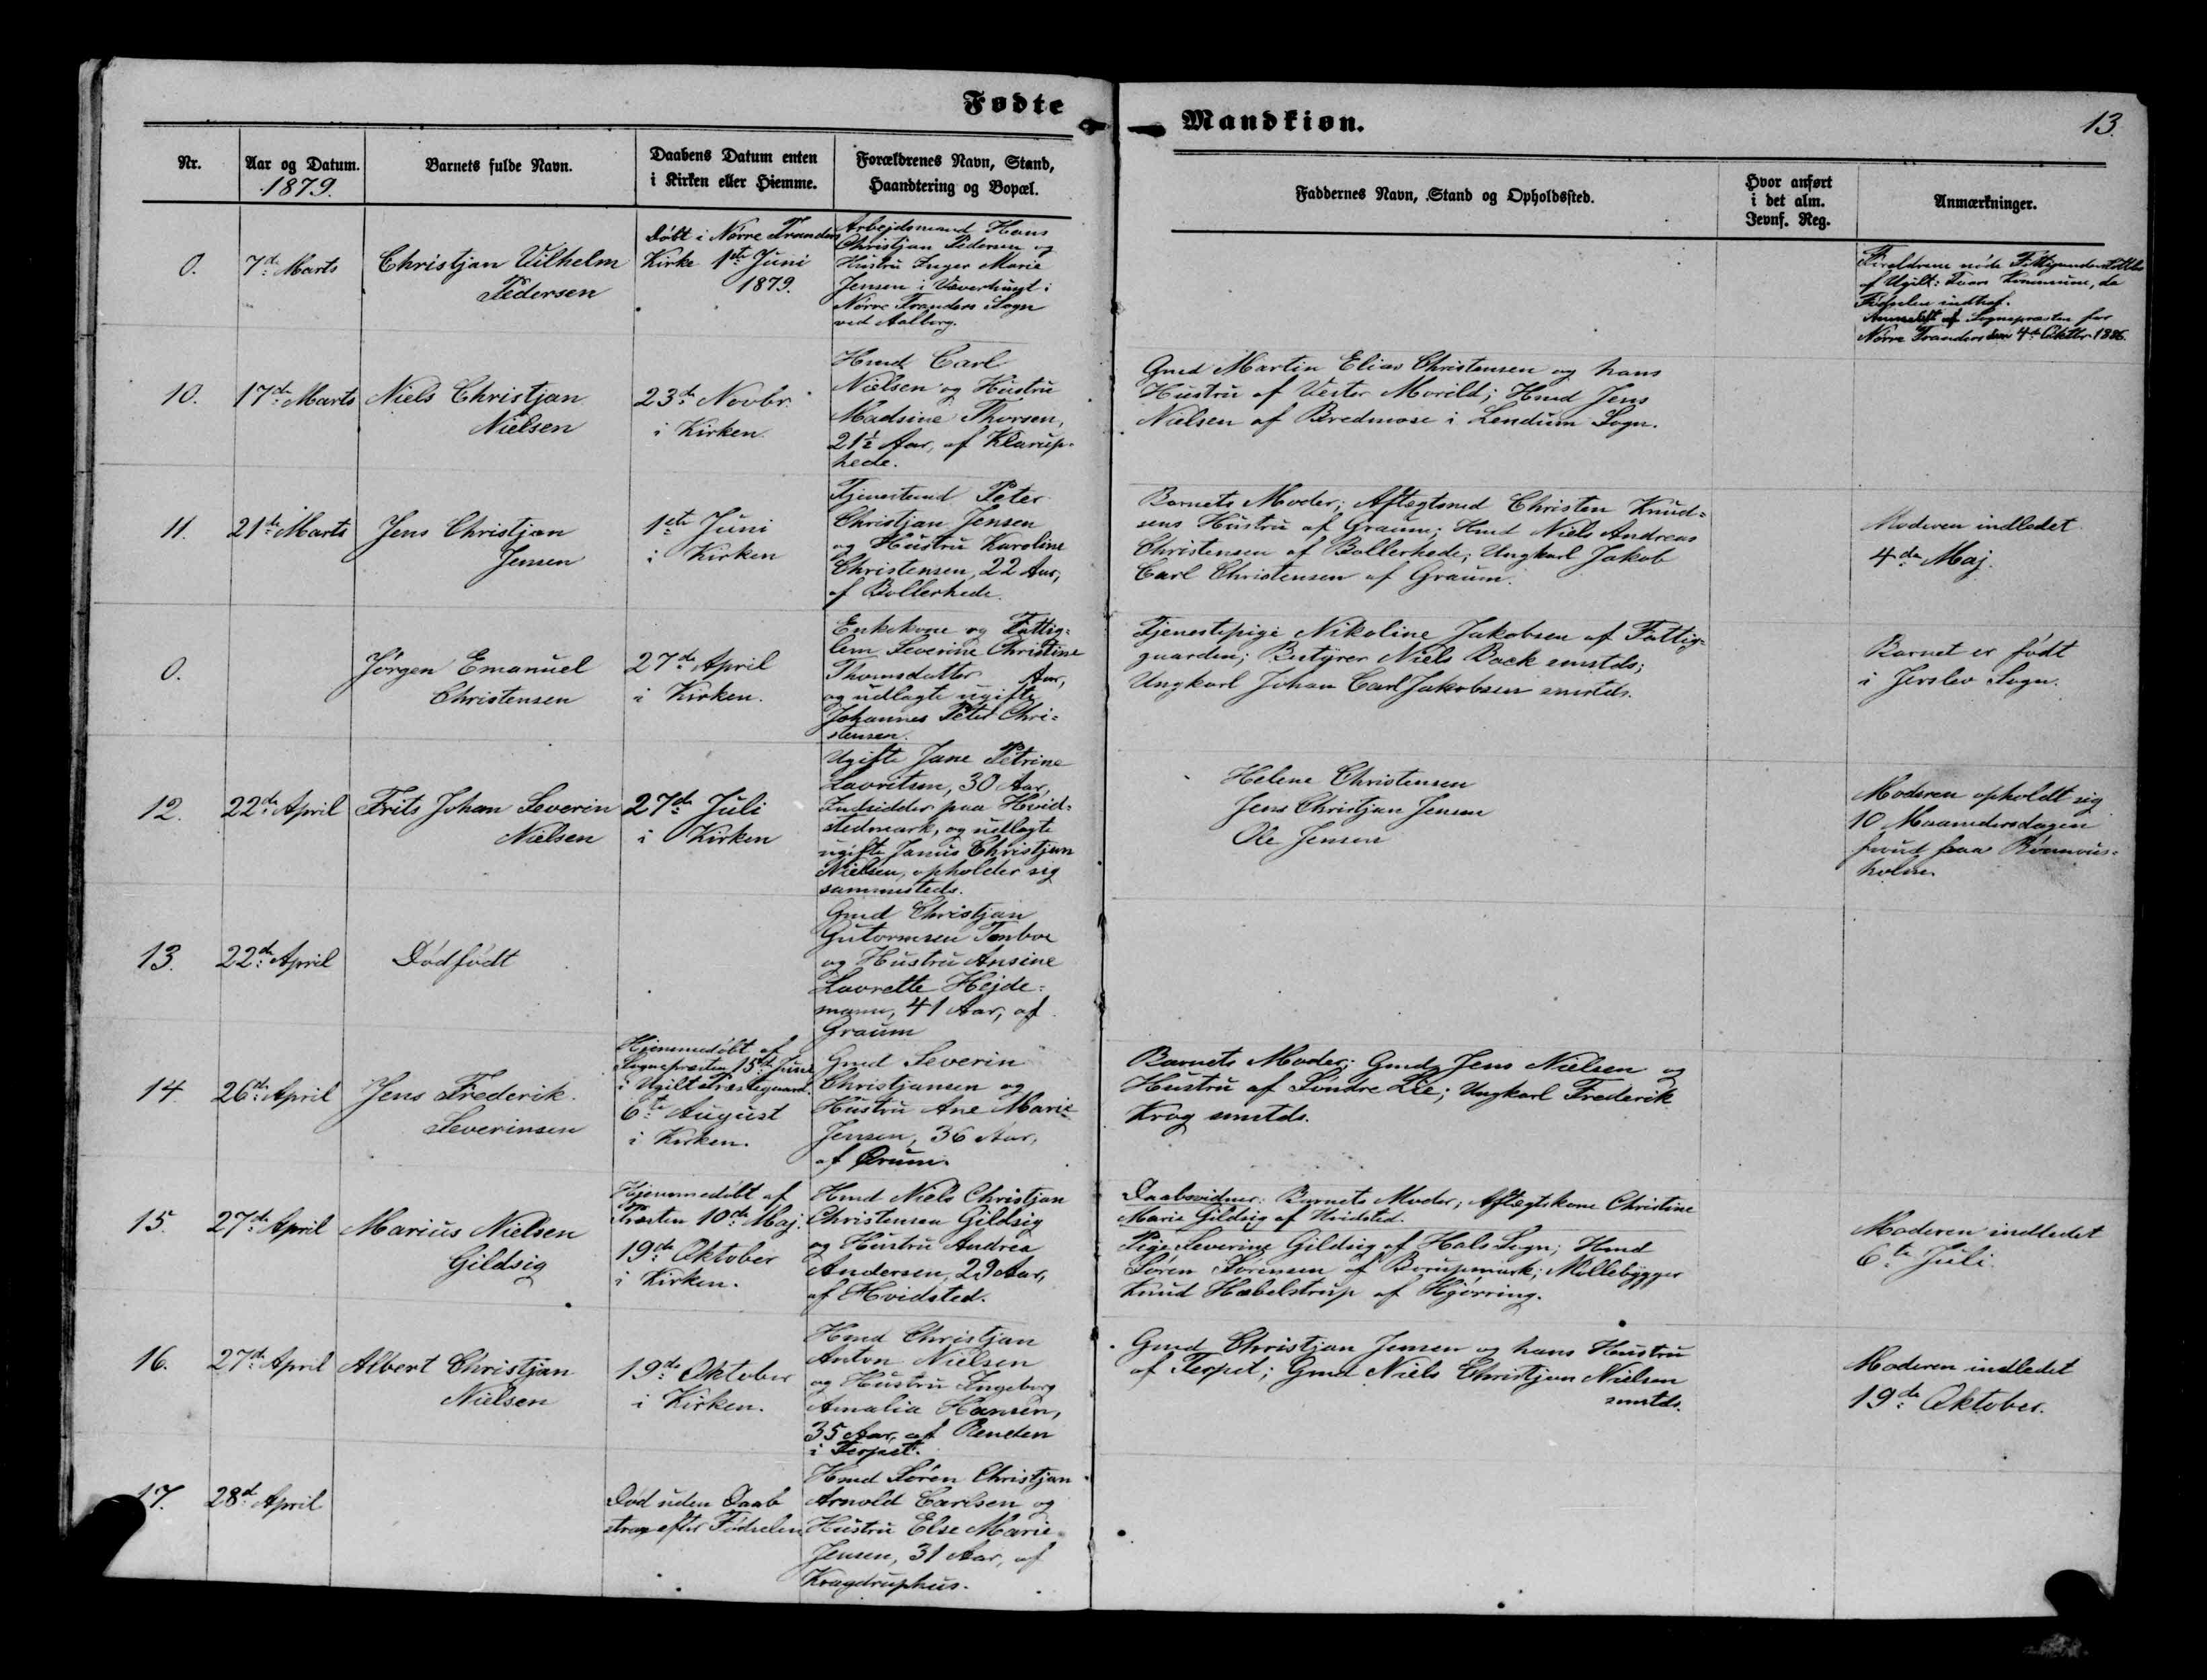 Fødte
Mandkiøn.
13.
Nr.
Aar og Datum.
1879.
Barnets fulde Navn.
Daabens Datum enten
i Kirken eller Hiemme.
Forældrenes Navn, Stand,
Haandtering og Bopæl.
Faddernes Navn, Stand og Opholdssted.
Hvor anført
i det alm.
Jevnf. Reg.
Anmærkninger.
0.
7de Marts
Christjan Vilhelm
Pedersen
Døbt i Nørre Tranders
Kirke 1ste Juni
1879.
Arbejdsmand Hans
Christjan Pedersen og
Hustru Inger Marie
Jensen i Væverhuset i
Nørre Tranders Sogn
ved Aalborg.
Forældrene nøde Fattigunderstøttelse
af Ugilt: Tvers Kommune, da
Fødselen indtraf.
Anmeldt af Sognepræsten for
Nørre Tranders den 4de Oktbr. 1886.
10.
17de Marts
Niels Christjan
Nielsen
23de Novbr.
i Kirken.
Hmd Carl
Nielsen og Hustru
Madsine Thorsen,
21½ Aar, af Klarup-
hede.
Gmd Martin Elias Christensen og hans
Hustru af Vester Morild; Hmd Jens
Nielsen af Bredmose i Lendum Sogn.
11.
21de Marts
Jens Christjan
Jensen
1ste Juni
i Kirken
Tjenestemd Peter
Christjan Jensen
og Hustru Karoline
Christensen, 22 Aar,
af Bollerhede.
Barnets Moder; Aftægtsmd Christen Knud-
sens Hustru af Graum; Hmd Niels Andreas
Christensen af Bollerhede; Ungkarl Jakob
Carl Christensen af Graum.
Moderen indledet
4de Maj.
0.
Jørgen Emanuel
Christensen
27de April
i Kirken.
Enkekone og Fattig-
lem Severine Christine
Thomsdatter Aar,
og udlagte ugifte
Johannes Peter Chri-
stensen.
Tjenestepige Nikoline Jakobsen af Fattig-
gaarden; Bestyrer Niels Back smstds;
Ungkarl Johan Carl Jakobsen smstds.
Barnet er født
i Jerslev Sogn.
12.
22de April
Frits Johan Severin
Nielsen
27de Juli
i Kirken
Ugifte Jane Petrine
Lavritsen, 30 Aar,
Indsidder paa Hvid-
stedmark, og udlagte
ugifte Janus Christjan
Nielsen, opholder sig
sammesteds.
Helene Christensen
Jens Christjan Jensen
Ole Jensen
Moderen opholdt sig
10 Maanedersdagen
forud paa
holm.
13.
22de April
Dødfødt
Gmd Christjan
Gutormsen Tanboe
og Hustru Ansine
Lavrette Hejde-
mann, 41 Aar, af
Graum
14.
26de April
Jens Frederik
Severinsen
Hjemmedøbt af
Sognepræsten 15de Juni
i Ugilt Præstegaard.
6te August
i Kirken.
Gmd Severin
Christjansen og
Hustru Ane Marie
Jensen, 36 Aar,
af Ørum.
Barnets Moder; Gmd Jens Nielsen og
Hustru af Søndre Lie; Ungkarl Frederik
Krog smstds.
15.
27de April
Marius Nielsen
Gildsig
Hjemmedøbt af
Præsten 10de Maj.
19de Oktober
i Kirken.
Hmd Niels Christjan
Christensen Gildsig
og Hustru Andrea
Andersen, 29 Aar,
af Hvidsted.
Daabsvidner: Barnets Moder; Aftægtskone Christine
Marie Gildsig af Hvidsted.
Pige Severine Gildsig af Hals Sogn; Hmd
Søren Sørensen af Borupmark; Møllebygger
Knud Hæbelstrup af Hjørring.
Moderen indledet
6te Juli.
16.
27de April
Albert Christjan
Nielsen
19de Oktober
i Kirken.
Hmd Christjan
Anton Nielsen
og Hustru Ingeborg
Amalia Hansen,
35 Aar, af Renden
i Terpet.
Gmd Christjan Jensen og hans Hustru
af Terpet; Gmd Niels Christjan Nielsen
smstds.
Moderen indledet
19de Oktober.
17.
28de April
Død uden Daab
strax efter Fødselen
Hmd Søren Christjan
Arnold Carlsen og
Hustru Else Marie
Jensen, 31 Aar, af
Kragdruphus.